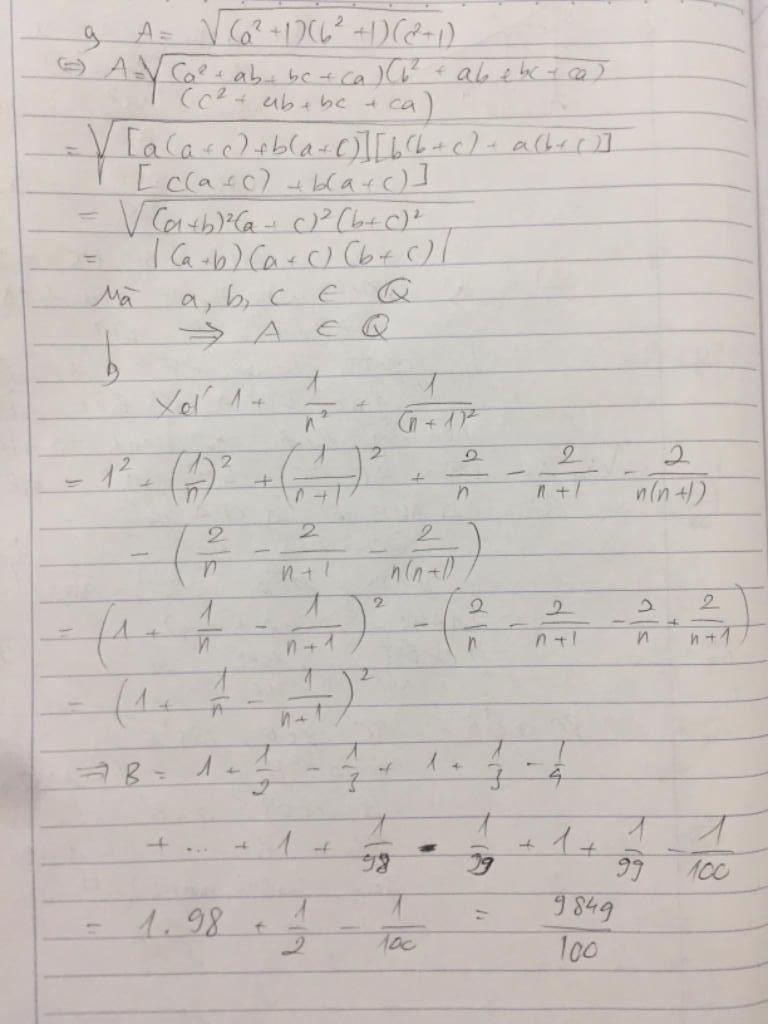 a A = √(a² + 1)(b² + 1)(c² + 1)
⇔ A = √(a² + ab + bc + ca)(b² + ab + bc + ca)
(c² + ab + bc + ca)
= √[a(a + c) + b(a + c)][b(b + c) + a(b + c)]
[c(a + c) + b(a + c)]
= √(a + b)²(a + c)²(b + c)²
= |(a + b)(a + c)(b + c)|
Mà a, b, c ∈ Q
⇒ A ∈ Q
b
Xét 1 + 1/n² + 1/(n + 1)²
= 1² + (1/n)² + (1/(n + 1))² + 2/n - 2/(n + 1) - 2/(n(n + 1))
- (2/n - 2/(n + 1) - 2/(n(n + 1)))
= (1 + 1/n - 1/(n + 1))² - (2/n - 2/(n + 1) - 2/n + 2/(n + 1))
= (1 + 1/n - 1/(n + 1))²
⇒ B = 1 + 1/2 - 1/3 + 1 + 1/3 - 1/4
+ ... + 1 + 1/98 - 1/99 + 1 + 1/99 - 1/100
= 1.98 + 1/2 - 1/100 = 9849/100